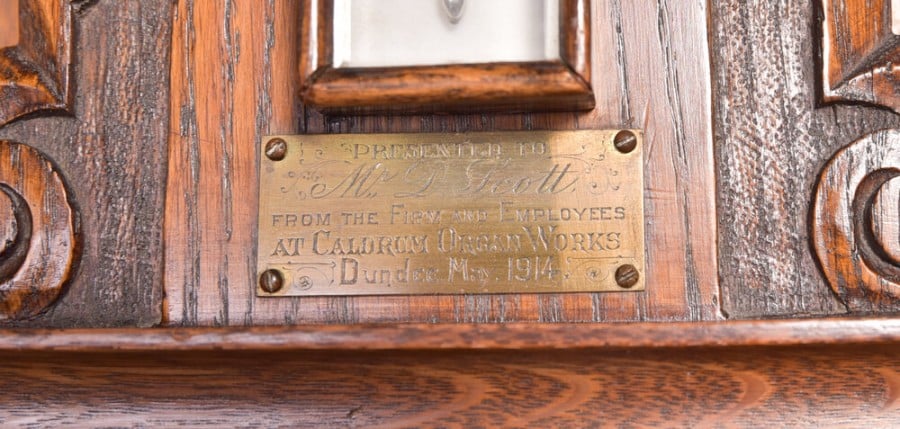 PRESENTED TO
Mr. D. Scott.
FROM THE FIRM AND EMPLOYEES
AT CALDRUM ORGAN WORKS
Dundee May. 1914.